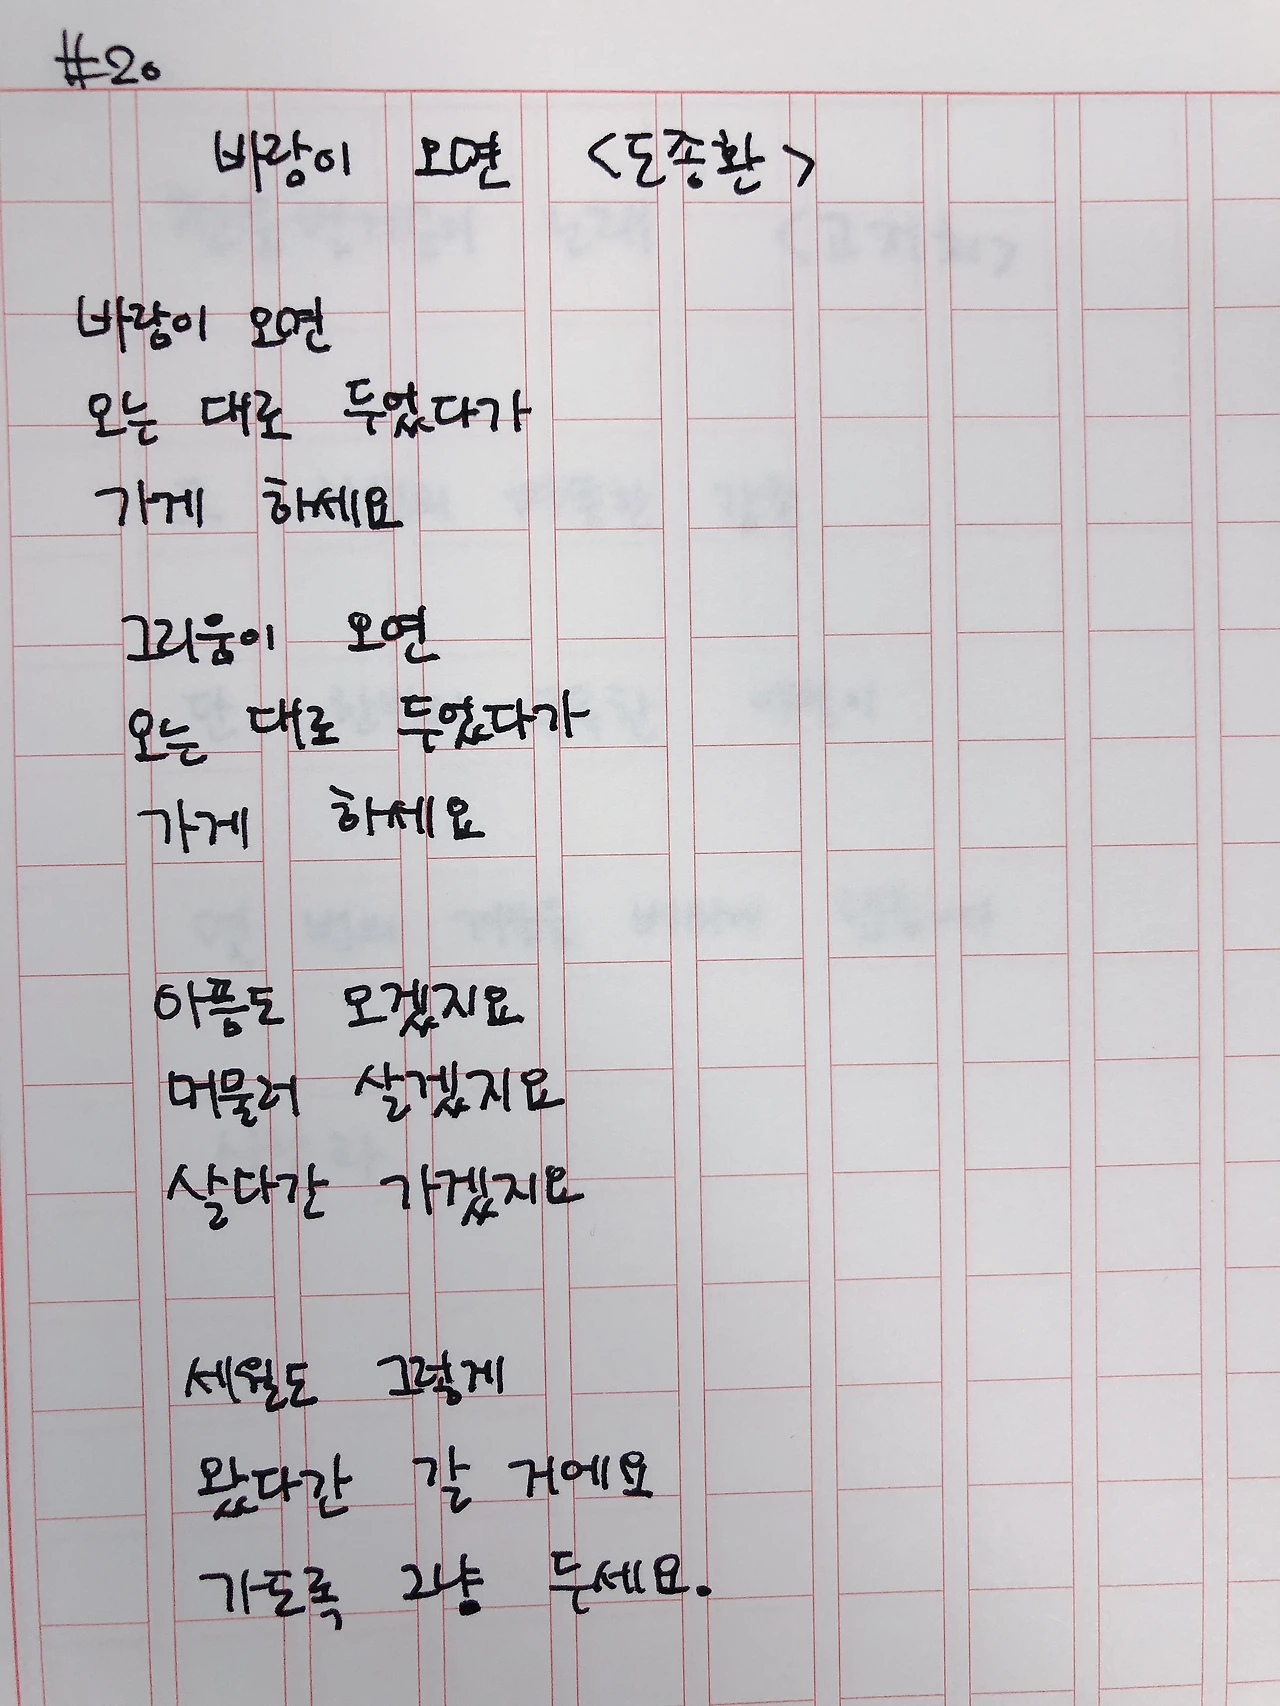 #20
바람이 오면 <도종환>
바람이 오면
오는 대로 두었다가
가게 하세요
그리움이 오면
오는 대로 두었다가
가게 하세요
아픔도 오겠지요
머물러 살겠지요
살다간 가겠지요
세월도 그렇게
왔다간 갈 거에요
가도록 그냥 두세요.